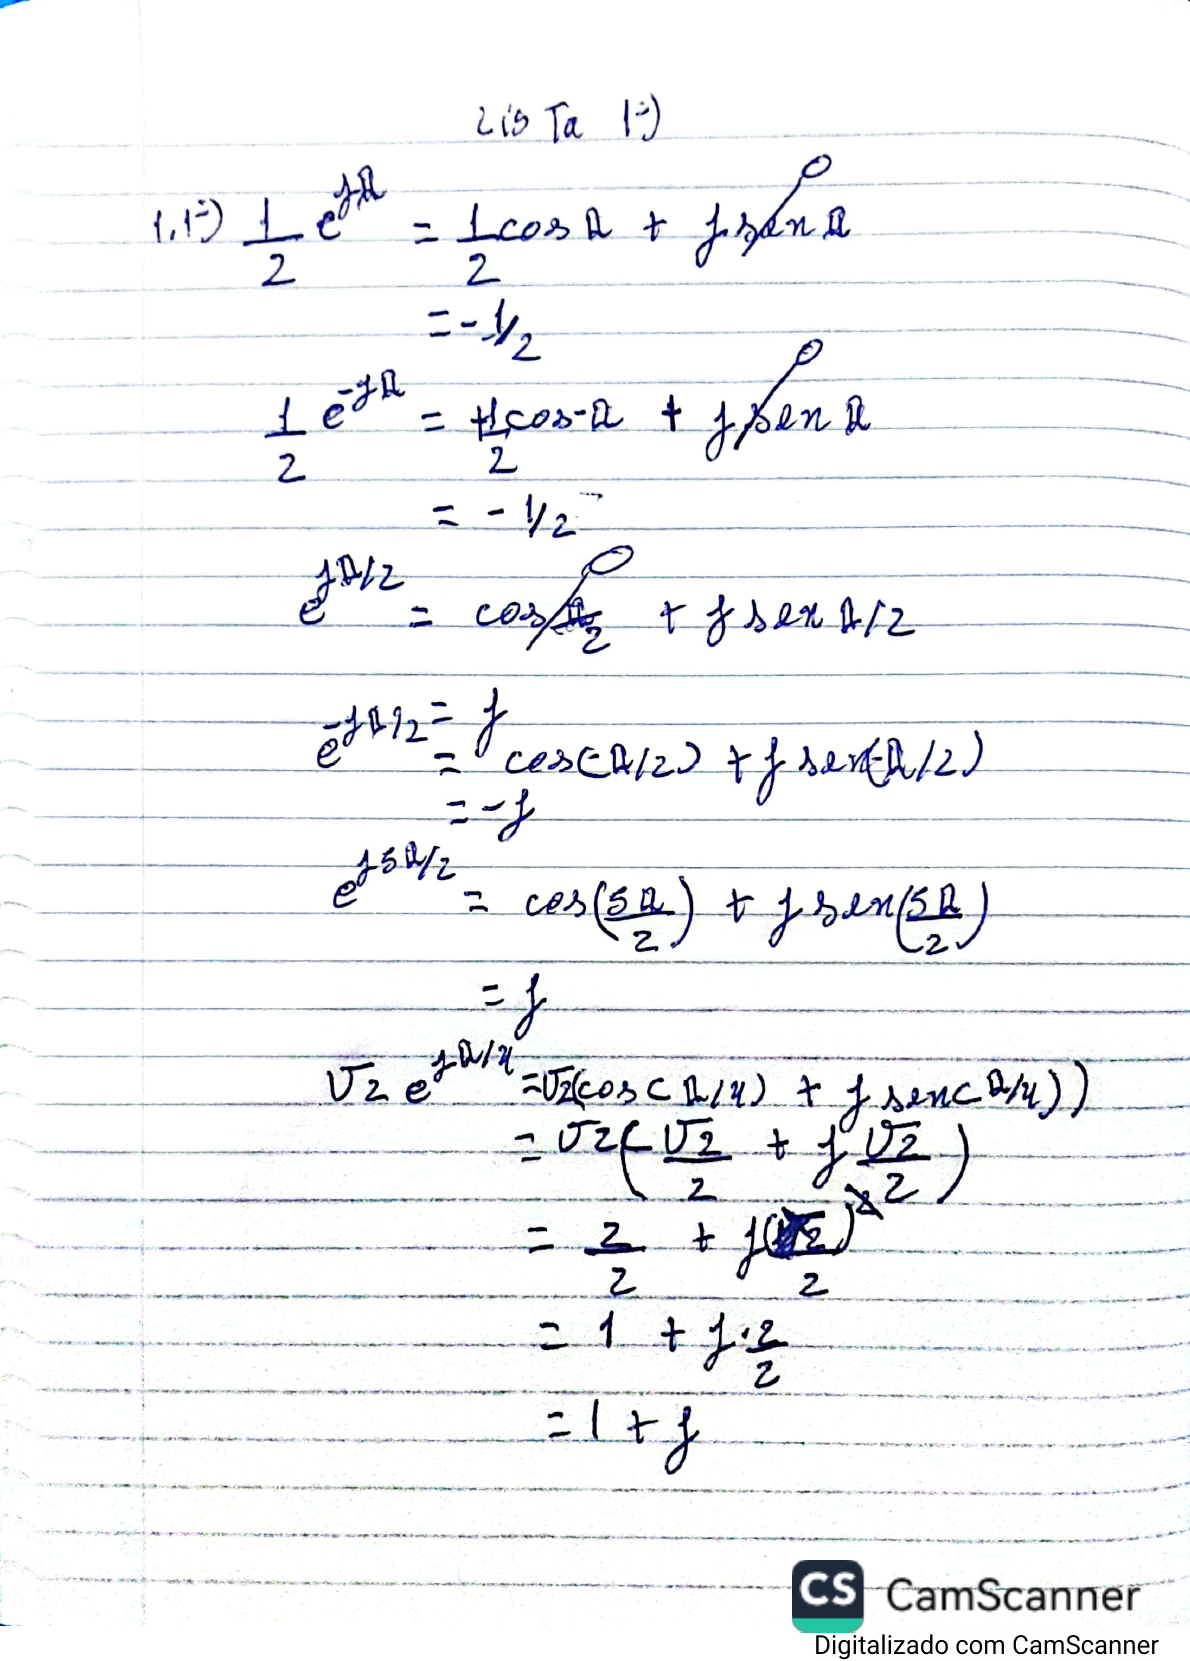 Lista 1-)
1.1-) 1/2 e^{jπ} = 1/2 cos π + j sen π 0
= -1/2
1/2 e^{-jπ} = +1/2 cos -π + j sen π 0
= - 1/2
e^{jπ/2} = cos π/2 0 + j sen π/2
= j
e^{-jπ/2} = cos(-π/2) + j sen(-π/2)
= -j
e^{j5π/2} = cos(5π/2) + j sen(5π/2)
= j
√2 e^{jπ/4} = √2(cos(π/4) + j sen(π/4))
= √2(√2/2 + j √2/2)
= 2/2 + j(√2)^2/2
= 1 + j·2/2
= 1 + j
CS CamScanner
Digitalizado com CamScanner